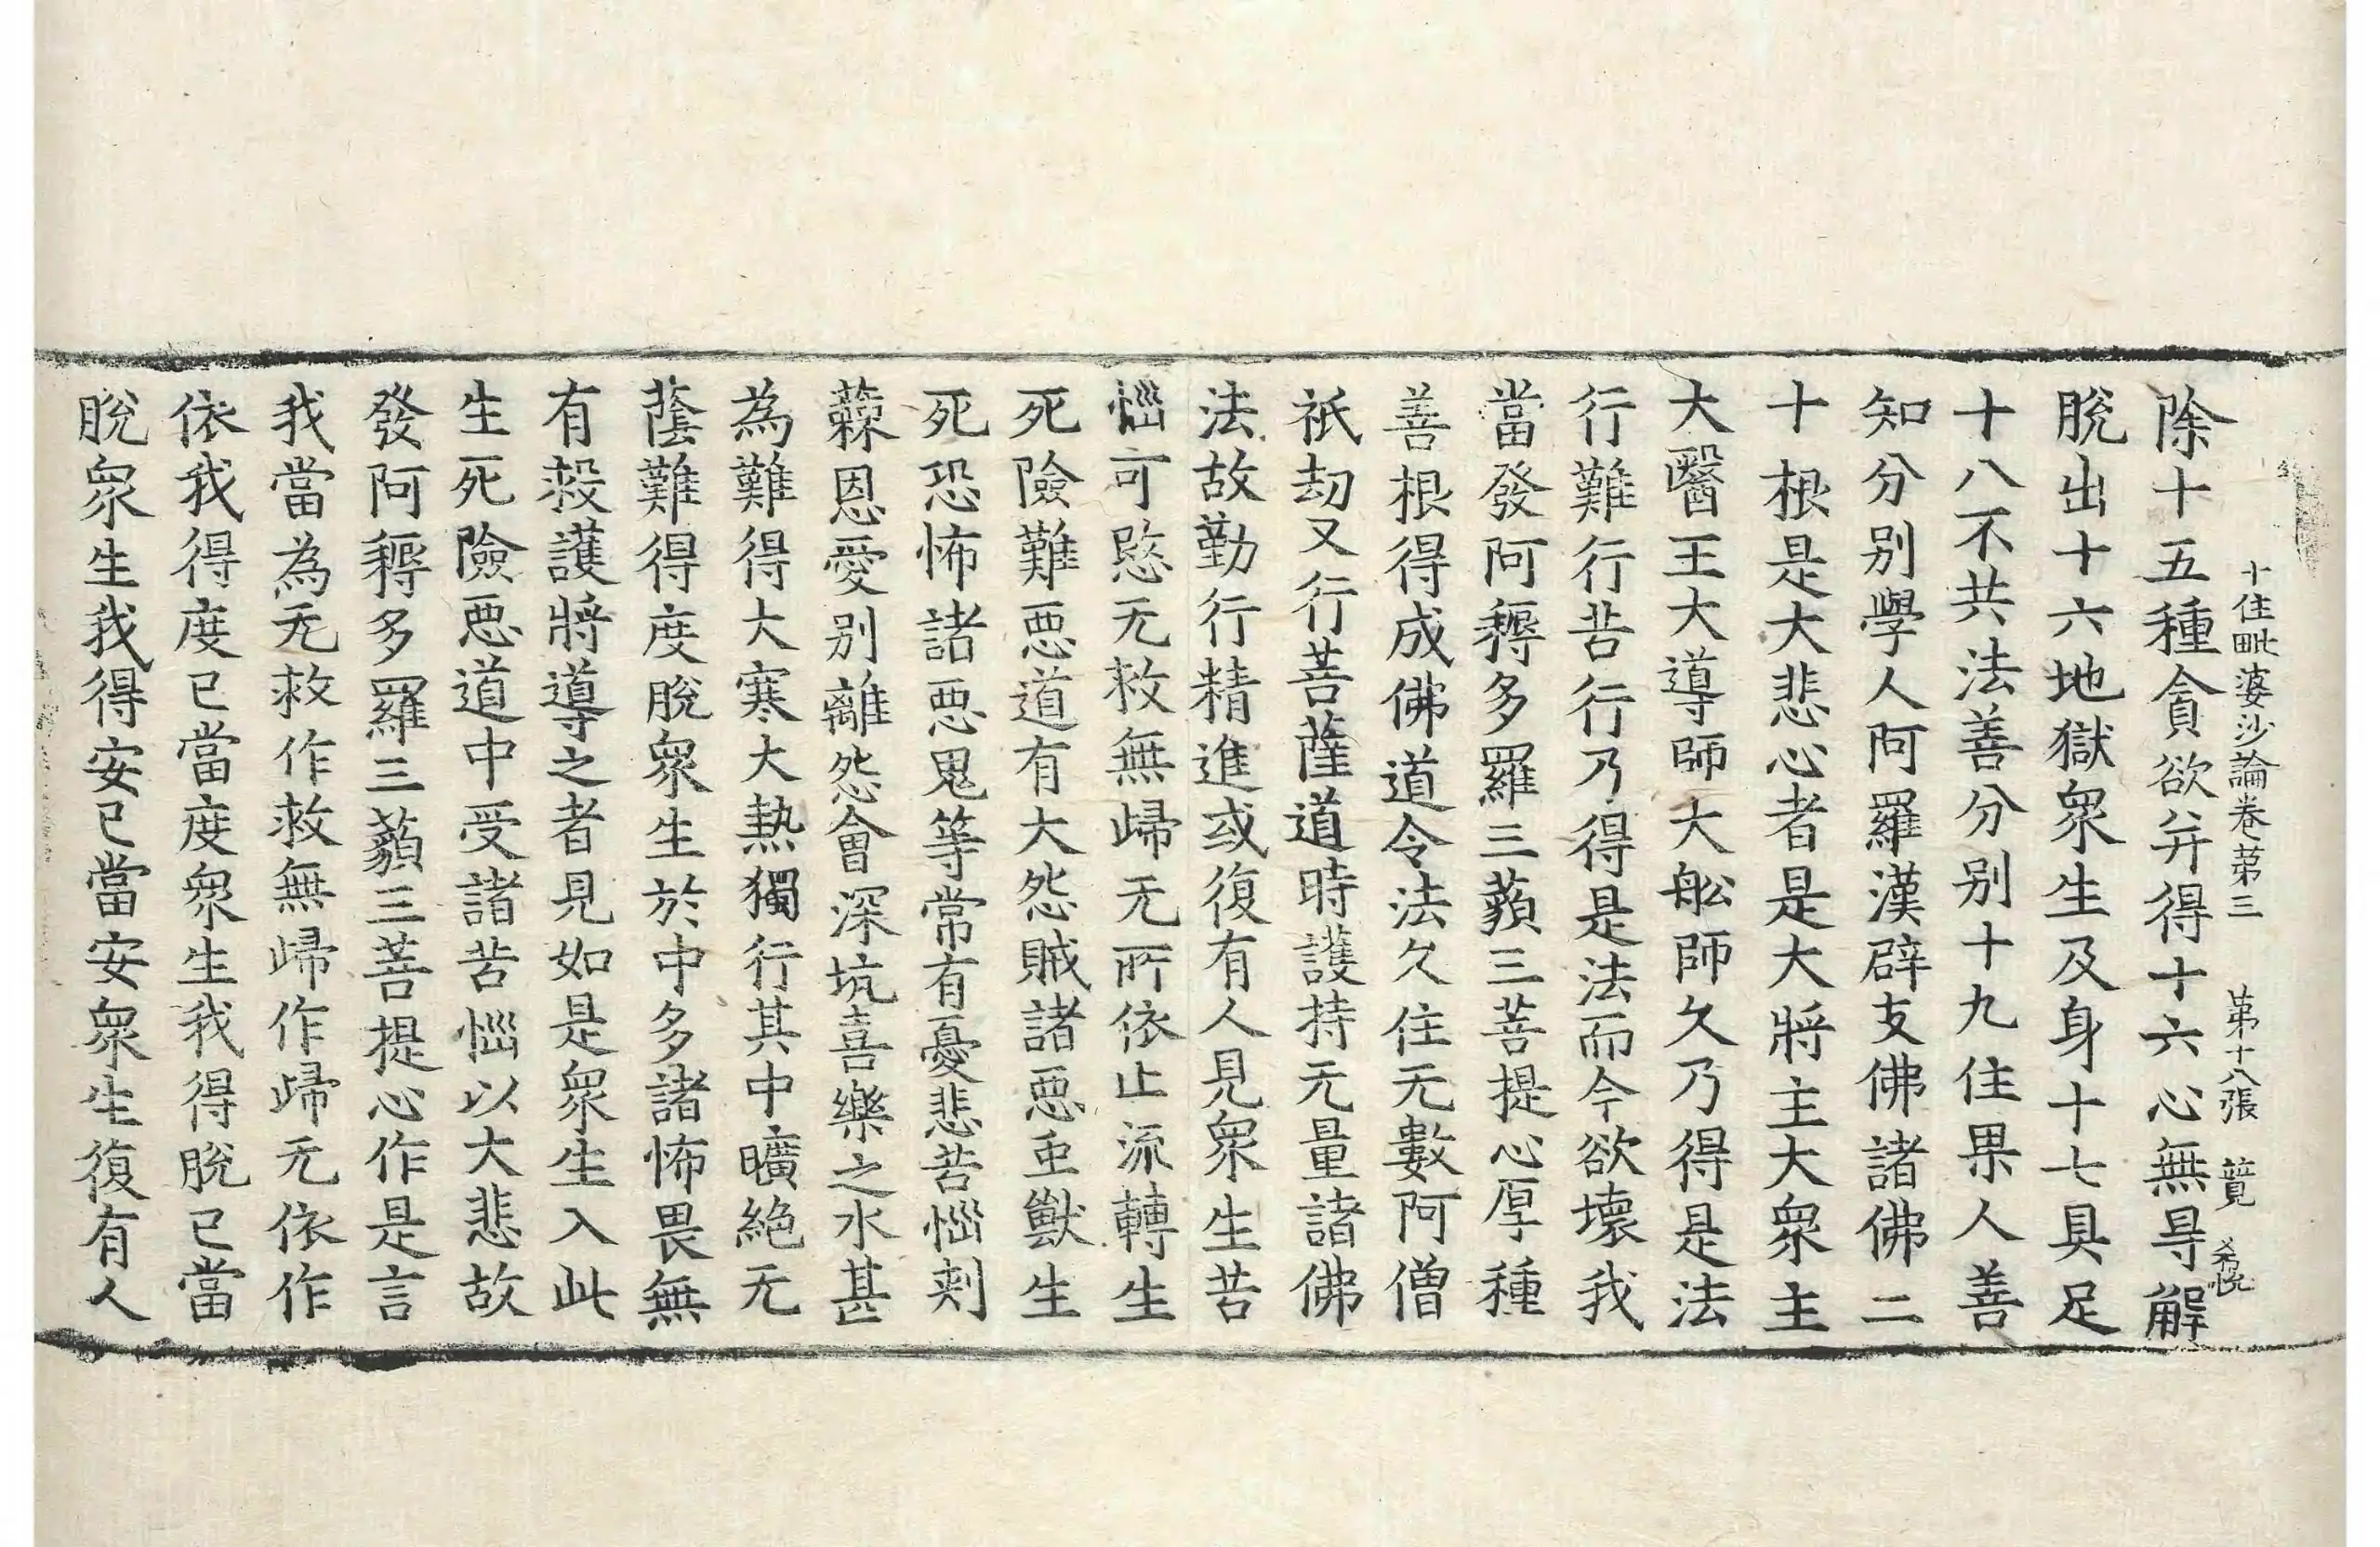 十住毗婆沙論卷第三 第十八張 蓂
除十五種貪欲并得十六心無㝵解
脫出十六地獄衆生及身十七具足
十八不共法善分別十九住果人善
知分別學人阿羅漢辟支佛諸佛二
十根是大悲心者是大將主大衆主
大醫王大導師大舩師久乃得是法
行難行苦行乃得是法而今欲壞我
當發阿耨多羅三藐三菩提心厚種
善根得成佛道令法久住无數阿僧
祇劫又行菩薩道時護持无量諸佛
法故勤行精進或復有人見衆生苦
惱可愍无救無歸无所依止流轉生
死險難惡道有大怨賊諸惡虫獸生
死恐怖諸惡鬼等常有憂悲苦惱刾
蕀恩愛別離怨會深坑喜樂之水甚
為難得大寒大熱獨行其中曠絕无
蔭難得度脫衆生於中多諸怖畏無
有救護將導之者見如是衆生入此
生死險惡道中受諸苦惱以大悲故
發阿耨多羅三藐三菩提心作是言
我當為无救作救無歸作歸无依作
依我得度已當度衆生我得脫已當
脫衆生我得安已當安衆生復有人